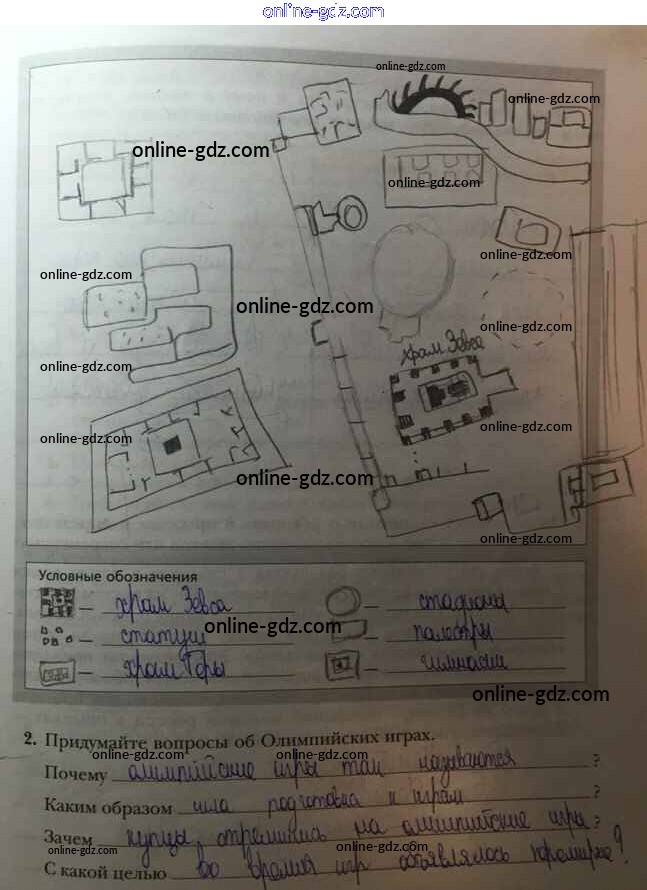 online-gdz.com
online-gdz.com
online-gdz.com
online-gdz.com
online-gdz.com
online-gdz.com
online-gdz.com
online-gdz.com
online-gdz.com
online-gdz.com
храм Зевса
online-gdz.com
online-gdz.com
online-gdz.com
online-gdz.com
online-gdz.com
Условные обозначения
– храм Зевса – стадионы
– статуи – палестры
online-gdz.com
– храм Геры – гимнасии
online-gdz.com
2. Придумайте вопросы об Олимпийских играх.
Почему олимпийские игры так называются ?
online-gdz.com online-gdz.com
Каким образом шла подготовка к играм ?
Зачем купцы стремились на олимпийские игры ?
online-gdz.com online-gdz.com
С какой целью во время игр объявлялось перемирие ?